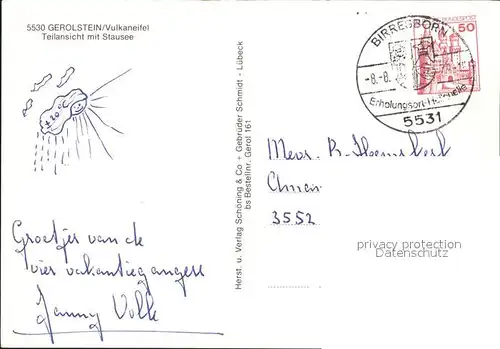 5530 GEROLSTEIN/Vulkaneifel
Teilansicht mit Stausee
± 20 °C
Groetjes van de
vier vakantiegangers
Janny Volle
Herst. u. Verlag Schöning & Co + Gebrüder Schmidt - Lübeck
bs Bestellnr. Gerol 161
BIRRESBORN
DEUTSCHE BUNDESPOST
50
-8.-8.
Erholungsort Heilquelle
5531
3552
privacy protection
Datenschutz